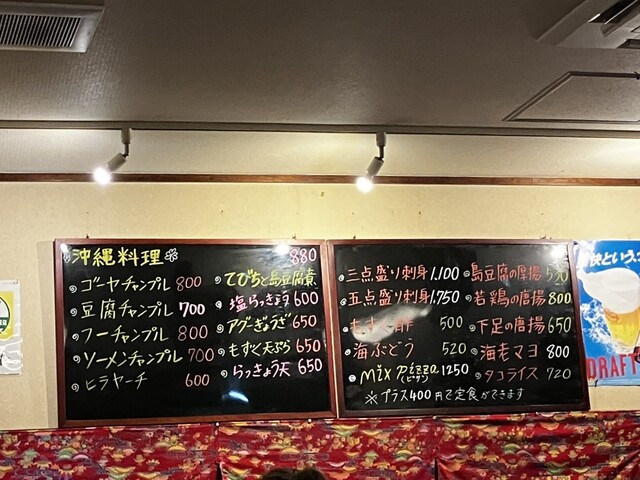 沖縄料理
ゴーヤチャンプル 800
豆腐チャンプル 700
フーチャンプル 800
ソーメンチャンプル 700
ヒラヤーチ 600
880
てびちと島豆腐煮
塩らっきょう 600
アグーぎょうざ 650
もずく天ぷら 650
らっきょう天 650
三点盛り刺身 1.100
五点盛り刺身 1.750
もずく酢 500
海ぶどう 520
Mix Pizza 1250
(ピザ)
島豆腐の厚揚
若鶏の唐揚 800
下足の唐揚 650
海老マヨ 800
タコライス 720
※プラス400円で定食ができます
快という
DRAFT